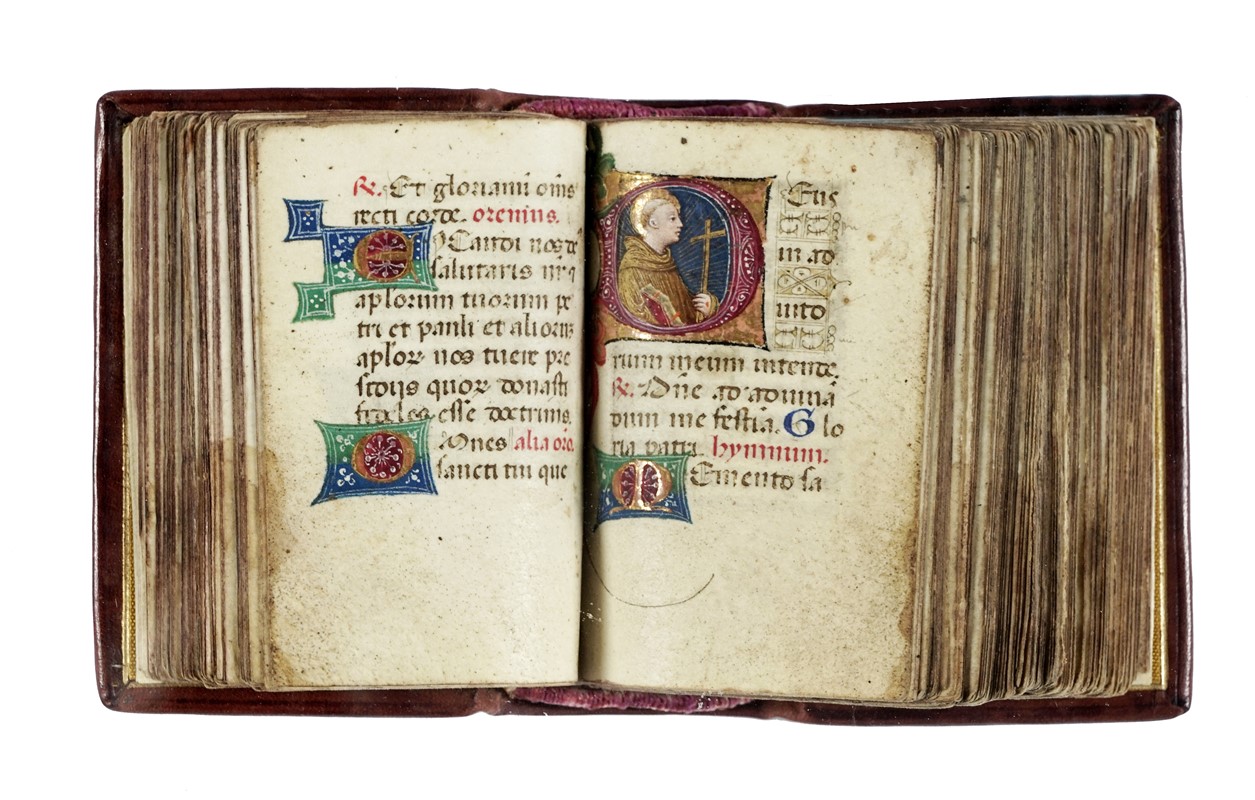 R. Et gloriami om̄s
recti corde. oremus.
EXaudi nos d̄s
salutaris nr̄ q
apl̄orum tuorum pe
tri et pauli et alioru
apl̄or nos tuere pre
sidijs quor donasti
fideles esse doctrinis.
OMnes alia oro.
sancti tui que
DEus
in ad
iuto
rium meum intende.
R. Dn̄e ad adiuvā
dum me festīa. Glo
ria patri hymnum.
MEmento sa